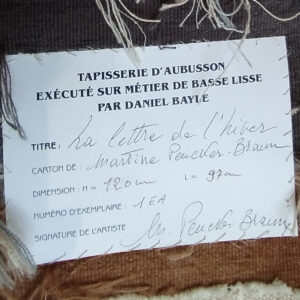 TAPISSERIE D'AUBUSSON
EXÉCUTÉ SUR MÉTIER DE BASSE LISSE
PAR DANIEL BAYLE
TITRE: La lettre de l'hiver
CARTON DE: Martine Peucker-Braun
DIMENSION: H = 120 cm L = 97 cm
NUMÉRO D'EXEMPLAIRE: 1 EA
SIGNATURE DE L'ARTISTE M. Peucker Braun